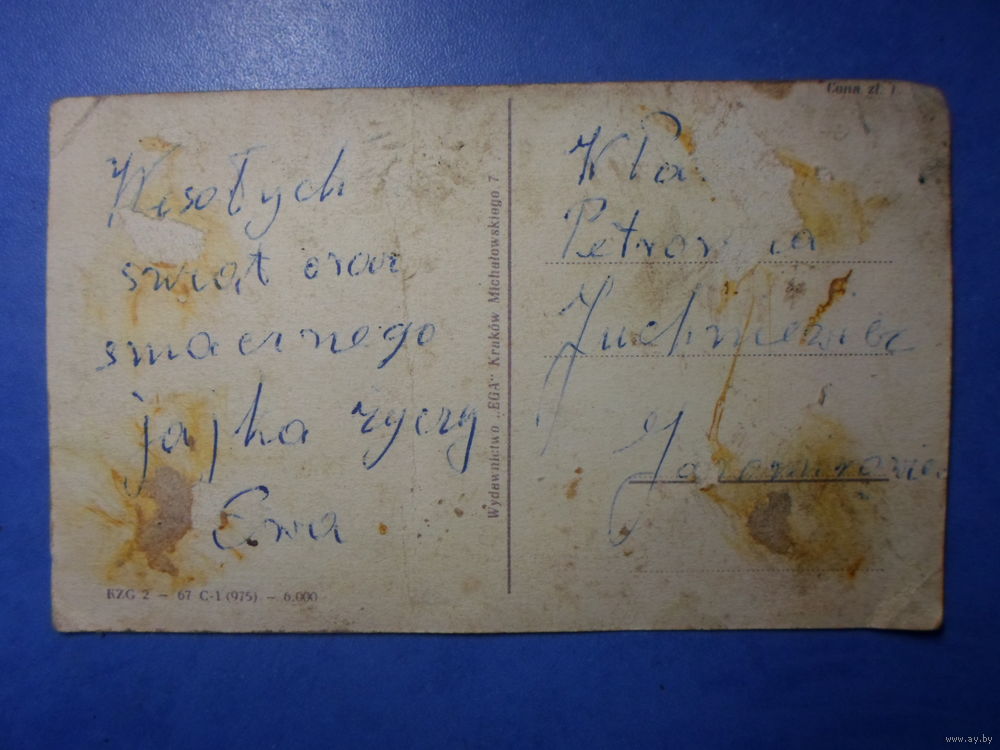 Wesołych
świąt oraz
smacznego
jajka życzy
Ewa
RZG 2 — 67 C-1 (975) — 6.000
Wydawnictwo „EGA” Kraków Michałowskiego 7
Cena zł. 1
Kla
Petronela
Juchniewicz
www.ay.by